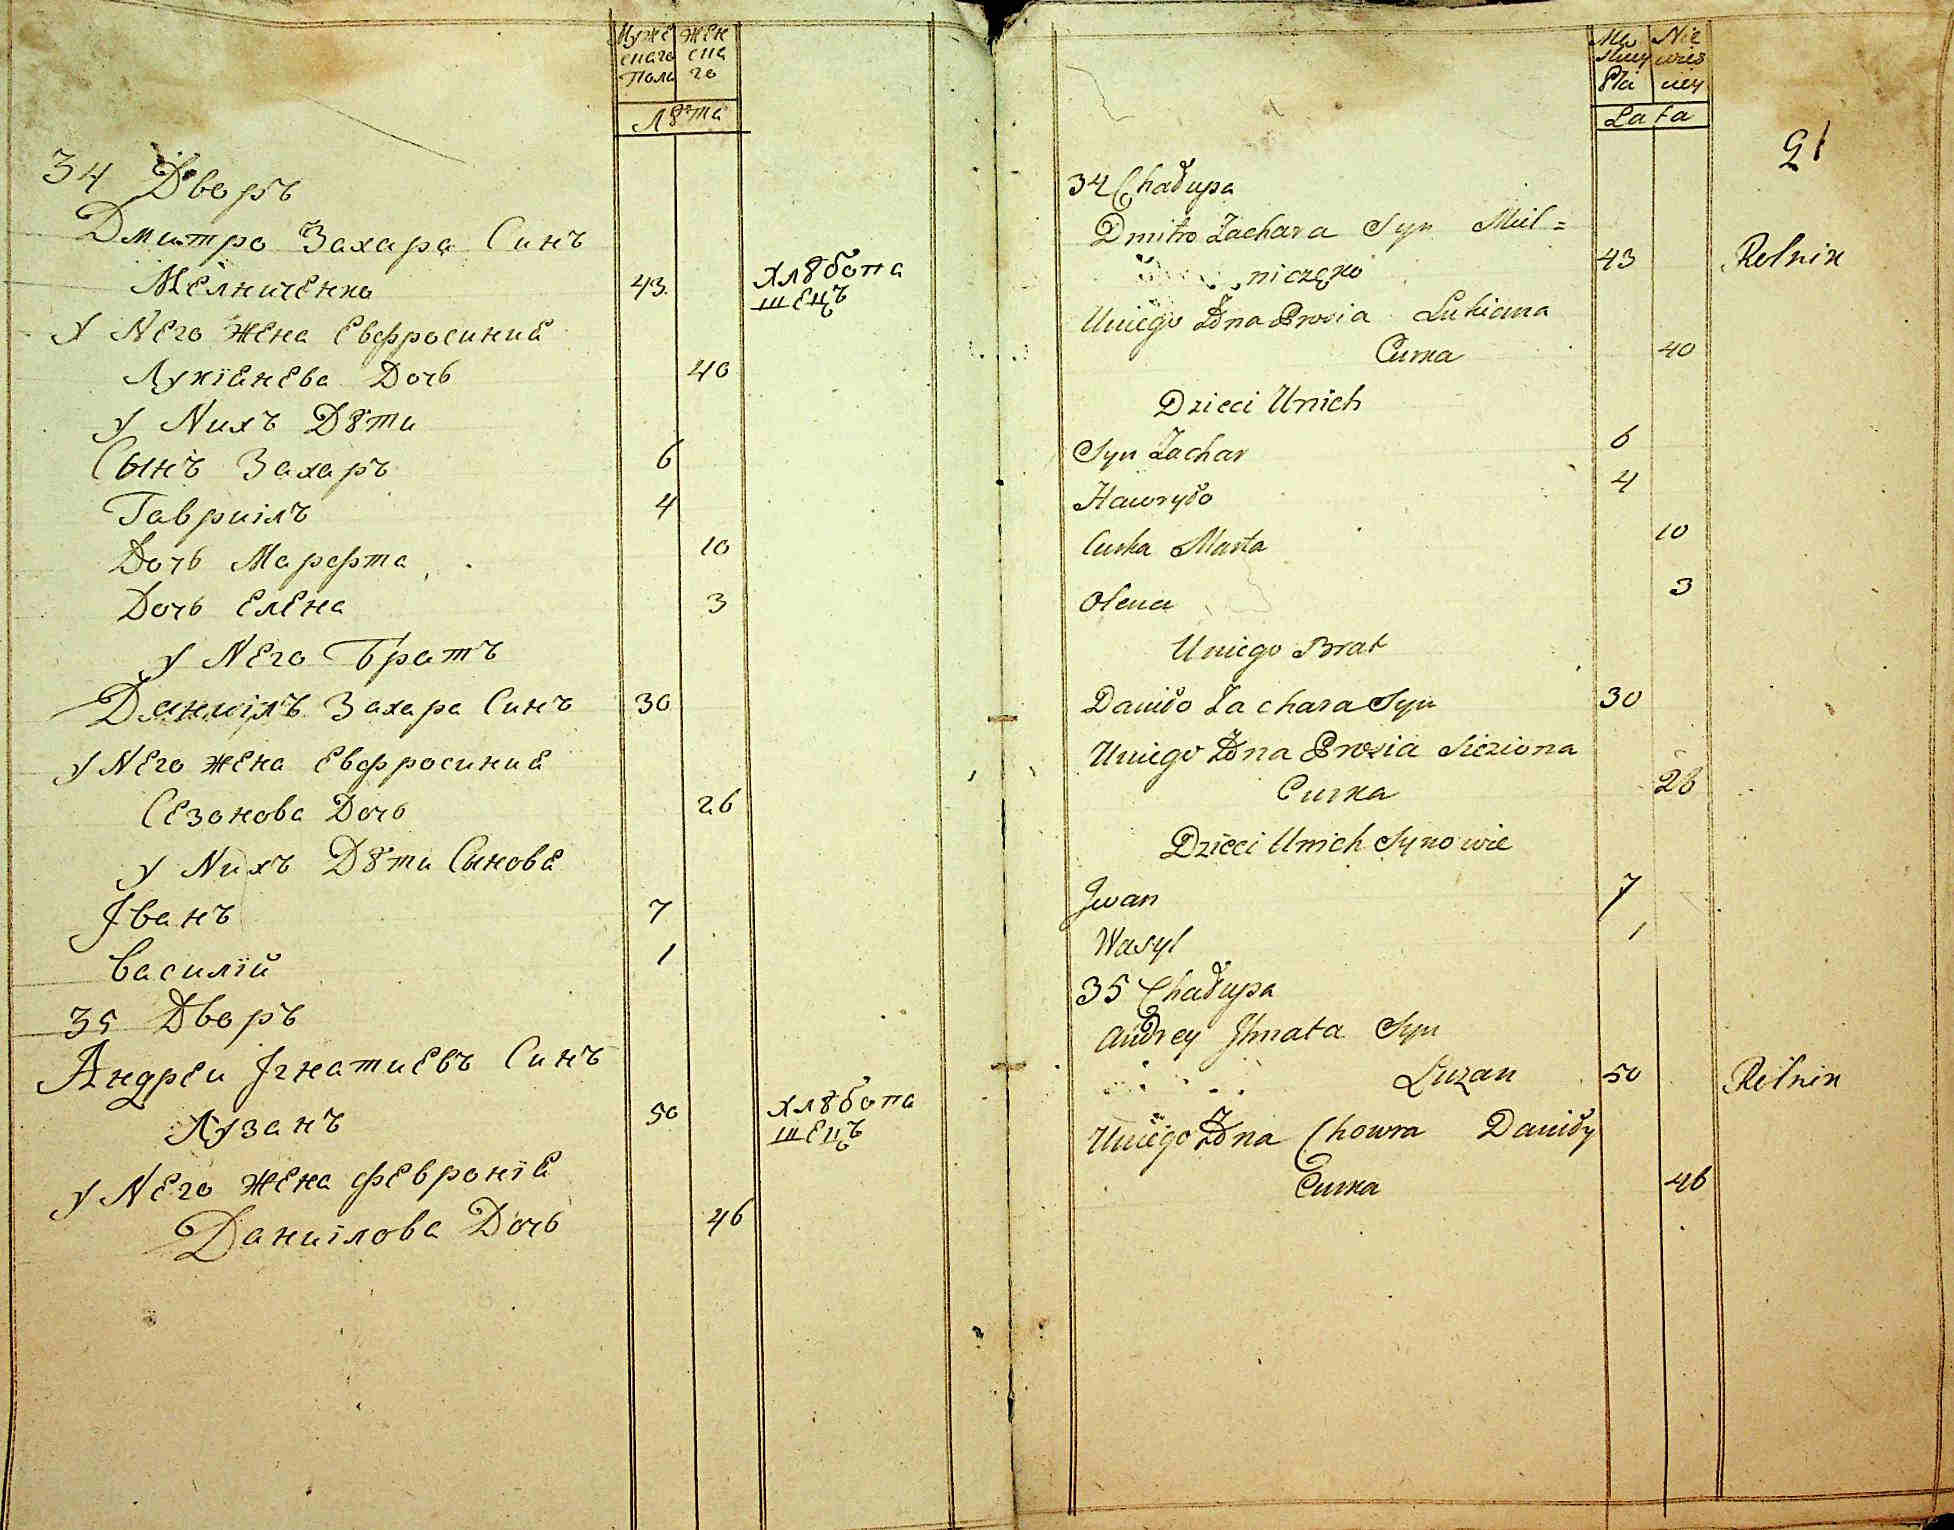 Мужескаго Пола
Женскаго
Лѣта
34 Дворъ
Дмитро Захара Синъ
Мелниченко 43 хлѣбопашецъ
У Него Жена Евфросиния
Лукіанева Дочь 40
У Нихъ Дѣти
Сынъ Захаръ 6
Гавриілъ 4
Дочь Марфта 10
Дочь Елена 3
У Него Братъ
Даниилъ Захара Синъ 30
У Него Жена Евфросиния
Сезонова Дочь 26
У Нихъ Дѣти Сынове
Іванъ 7
Василій 1
35 Дворъ
Андреи Ігнатиевъ Синъ
Лузанъ 50 хлѣбопашецъ
У Него Жена Февроніа
Даниілова Дочь 46
Lata
34 Chałupa
Dmitro Zachara Syn Miel=
niczęko 43 Rolnik
Uniego Żona Prosia Lukiana
Curka 40
Dzieci Unich
Syn Zachar 6
Hawryło 4
Curka Marta 10
Olena 3
Uniego Brat
Daniło Zachara Syn 30
Uniego Żona Prosia Sieziona
Curka 26
Dzieci Unich Synowie
Jwan 7
Wasyl 1
35 Chałupa
Andrey Jhnata Syn
Luzan 50 Rolnik
Uniego Żona Chowra Daniły
Curka 46